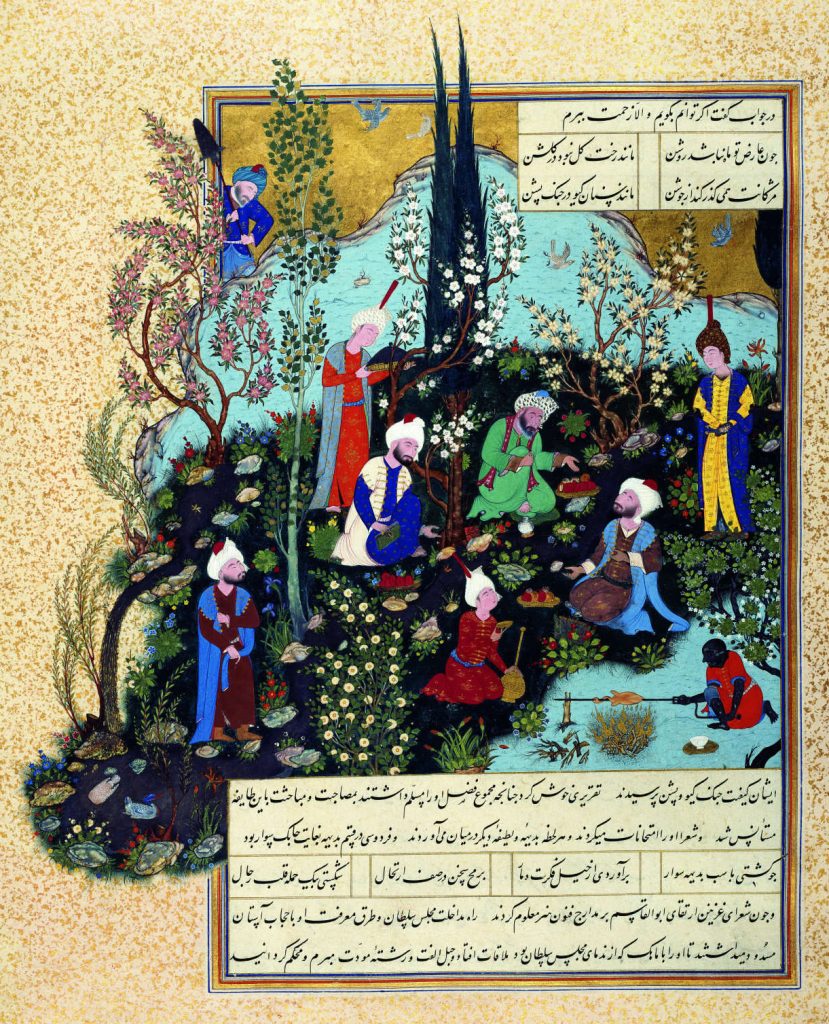 درجواب گفت اگر توانم بگویم و الا زحمت ببرم
چون عارض تو ماه نباشد روشن مانند رخت گل نبود در گلشن
مژگانت همی گذر کند از جوشن مانند سنان گیو در جنگ پشن
ایشان کیفیت جنگ گیو و پشن پرسیدند تقریری خوش کرد چنانچه مجموع فضل او را مسلم داشتند بمصاحبت و مباحثت باین طایفه
مستانس شد و شعرا او را امتحانات میکردند و هر لحظه بدیهه و لطیفه دیگر در میان می آوردند و فردوسی در قسم بدیهه بغایت چابک سوار بود
چو گشتی بر اسب بدیهه سوار برآوردی از خیل فکرت دمار برمح سخن در صف ارتجال شکستی بیک حمله قلب رجال
و چون شعرای غزنین ارتقای ابوالقاسم بر مدارج فنون هنر معلوم کردند راه مداخلت مجلس سلطان و طرق معرفت او با حجاب آستان
مسدود میداشتند تا او را با ماهک که از ندمای مجلس سلطان بود ملاقات افتاد و حبل الفت و رشته مودت مبرم و محکم گردانید